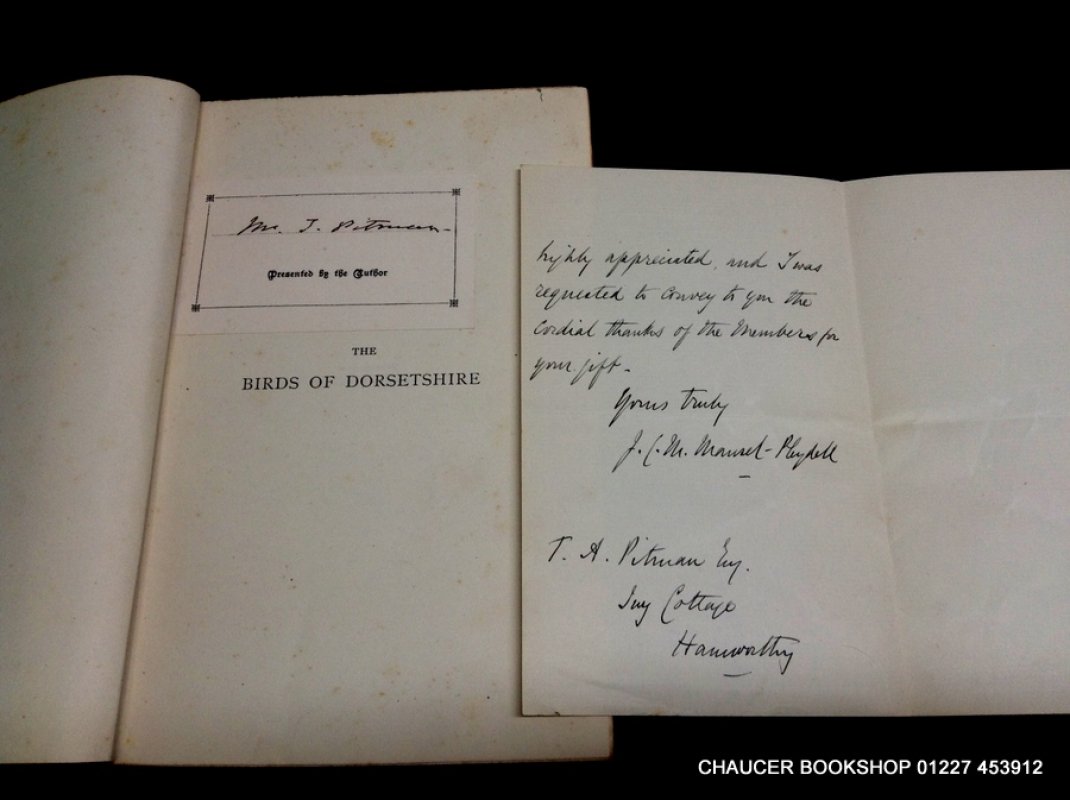 Mr. T. Pitman
Presented by the Author
THE
BIRDS OF DORSETSHIRE
highly appreciated, and I was
requested to convey to you the
cordial thanks of the Members for
your gift.
Yours truly
J. C. M. Mansel-Pleydell
T. A. Pitman Esq.
Ivy Cottage
Hamworthy
CHAUCER BOOKSHOP 01227 453912